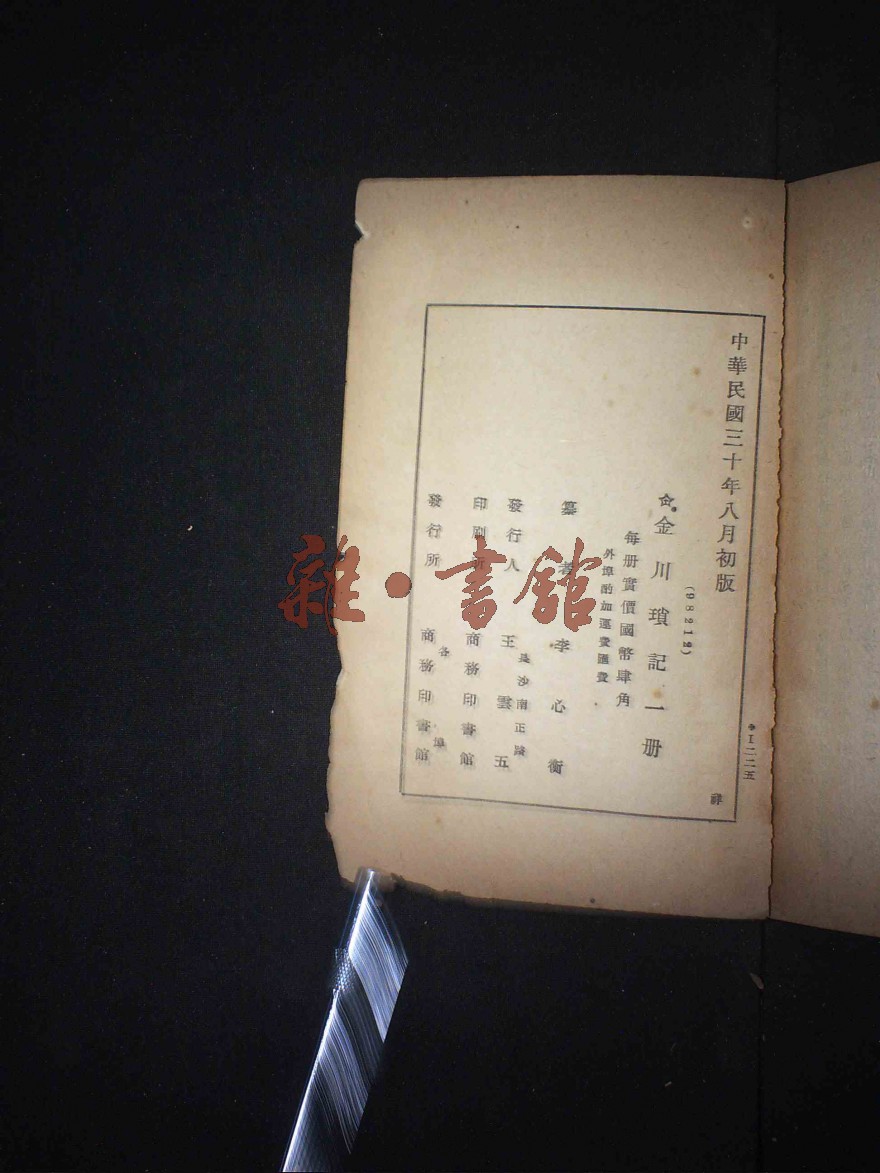 中華民國三十年八月初版
(98212)
金川瑣記一册
每册實價國幣肆角
外埠酌加運費匯費
纂者李心衡
長沙南正路
發行人王雲五
印刷所商務印書館
各埠
發行所商務印書館
＊I二二五
祥
雜·書館